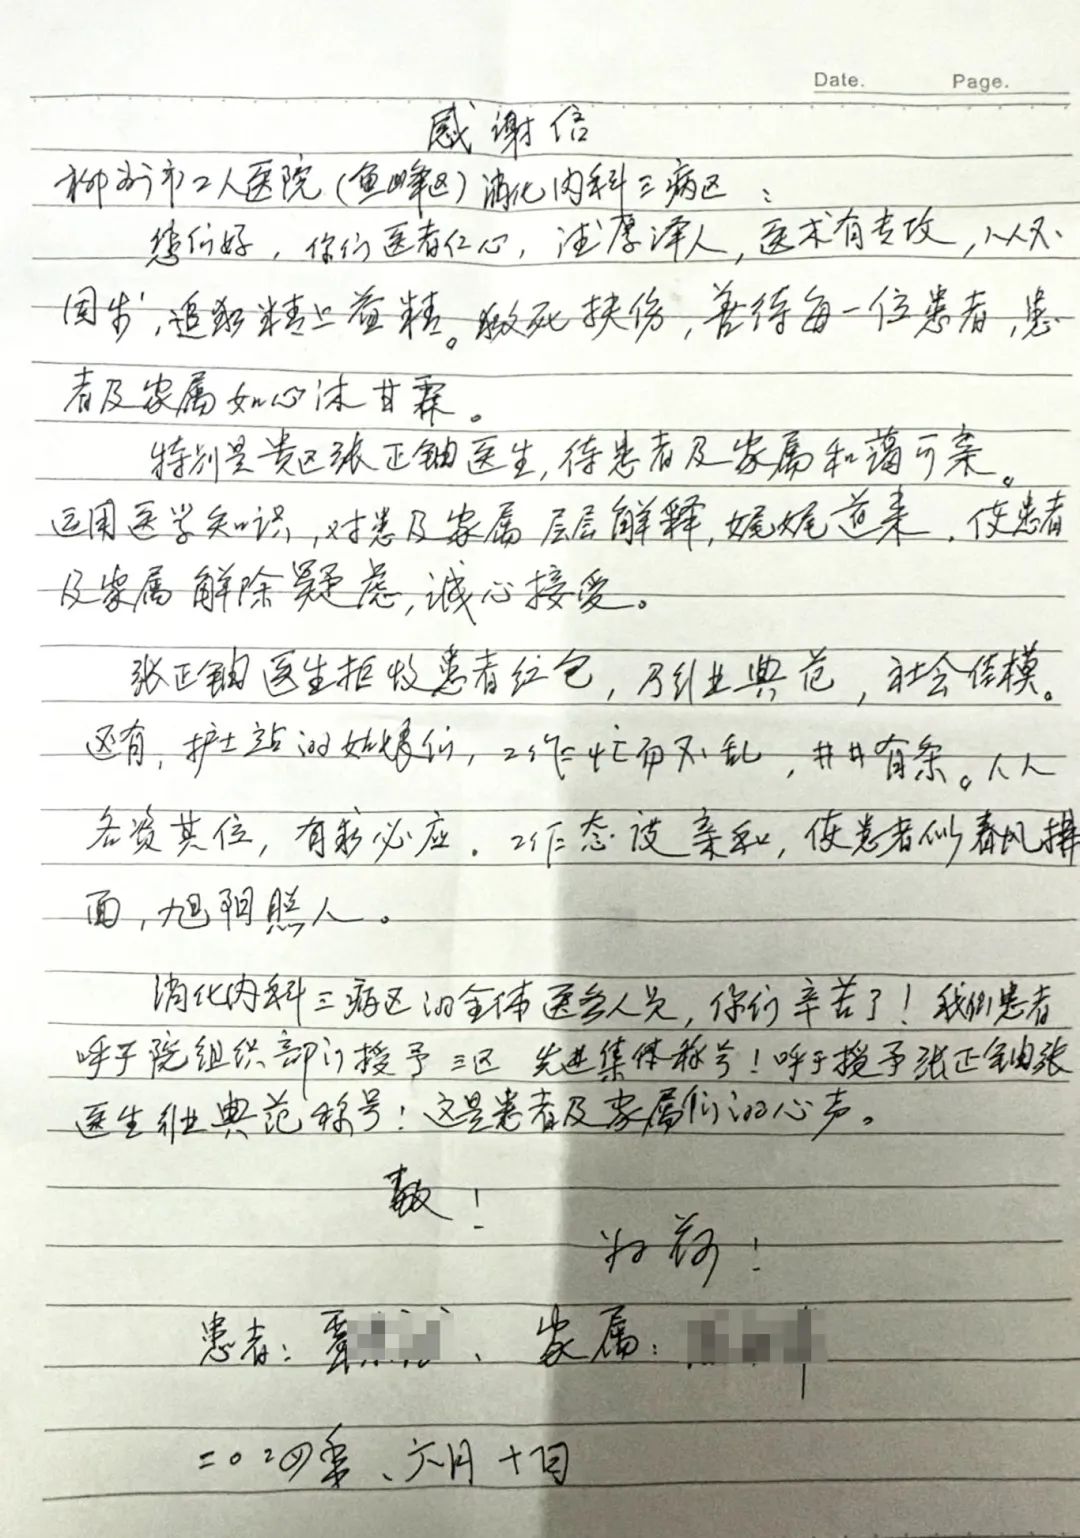 Date. Page.
感谢信
柳州市工人医院(鱼峰区)消化内科三病区：
您们好，你们医者仁心，德厚泽人，医术有专攻，人人不
固步，追求精上益精。救死扶伤，善待每一位患者，患
者及家属如心沐甘霖。
特别是贵区张正铀医生，待患者及家属和蔼可亲。
运用医学知识，对患及家属层层解释，娓娓道来，使患者
及家属解除疑虑，诚心接受。
张正铀医生拒收患者红包，乃行业典范，社会佳模。
还有，护士站的姑娘们，工作忙而不乱，井井有条。人人
各资其位，有求必应，工作态度亲和，使患者似春风拂
面，旭阳照人。
消化内科三病区的全体医务人员，你们辛苦了！我们患者
呼于院组织部门授予三区 先进集体称号！呼于授予张正铀张
医生行业典范称号！这是患者及家属们的心声。
致！
患者：覃 、家属：
二〇二四年、六月十日